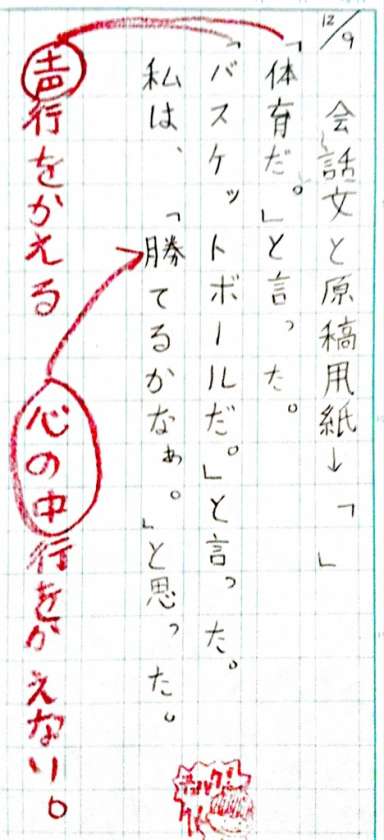 12/9 会話文と原稿用紙→「 」
「体育だ。」と言った。
「バスケットボールだ。」と言った。
私は、「勝てるかなぁ。」と思った。
声行をかえる 心の中行をかえない。